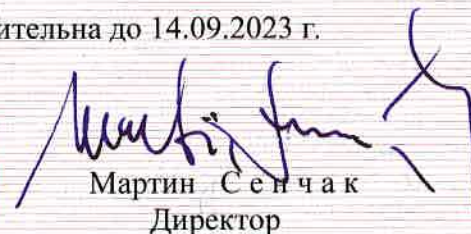 ительна до 14.09.2023 г.
Мартин Сенчак
Директор